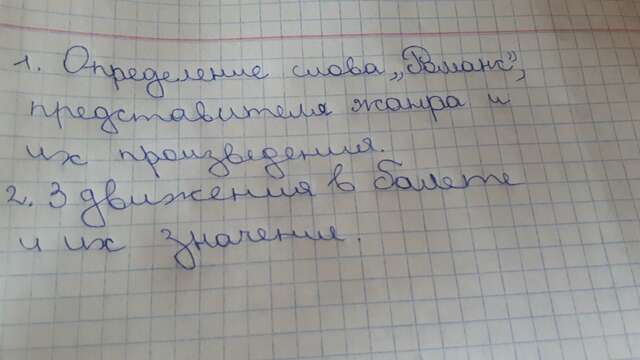 1. Определение слова „Романс”,
представители жанра и
их произведения.
2. 3 движения в балете
и их значение.